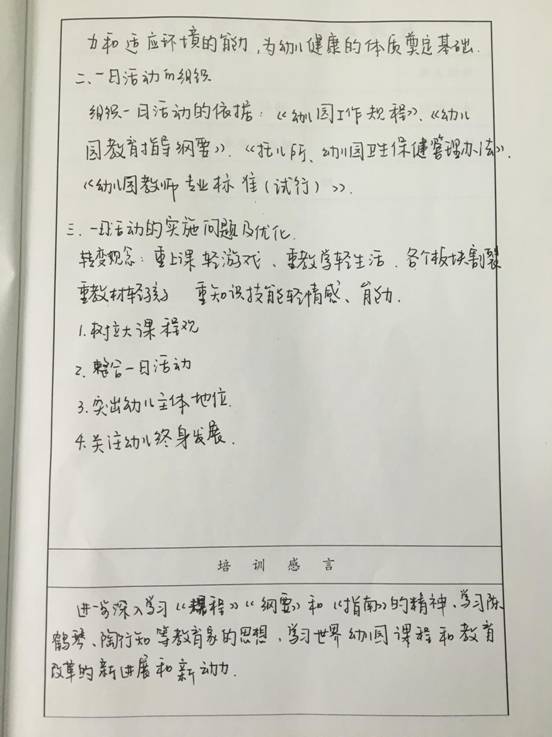 力和适应环境的能力,为幼儿健康的体质奠定基础.
二、一日活动的组织
组织一日活动的依据:《幼儿园工作规程》、《幼儿
园教育指导纲要》、《托儿所、幼儿园卫生保健管理办法》、
《幼儿园教师专业标准(试行)》.
三、一日活动的实施问题及优化.
转变观念:重上课轻游戏、重教学轻生活、各个板块割裂
重教材轻孩子 重知识技能轻情感、能力.
1.树立大课程观
2.整合一日活动
3.突出幼儿主体地位.
4.关注幼儿终身发展.
培训感言
进一步深入学习《规程》《纲要》和《指南》的精神、学习陈
鹤琴、陶行知等教育家的思想、学习世界幼儿园课程和教育
改革的新进展和新动力.